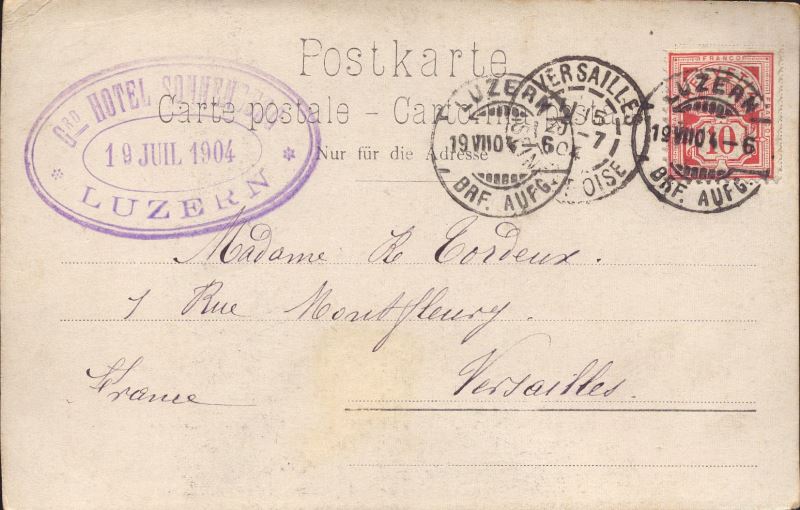 Postkarte
Carte postale - Carto
Nur für die Adresse
GRD HOTEL SONNENBERG
19 JUIL 1904
* LUZERN *
LUZERN
19 VII 04 - 6
BRF. AUFG.
VERSAILLES
15
7
OISE
LUZERN
19 VII 04 - 6
BRF. AUFG.
FRANCO
10
Madame R Cordeux.
1 Rue Montfleury.
Versailles.
France